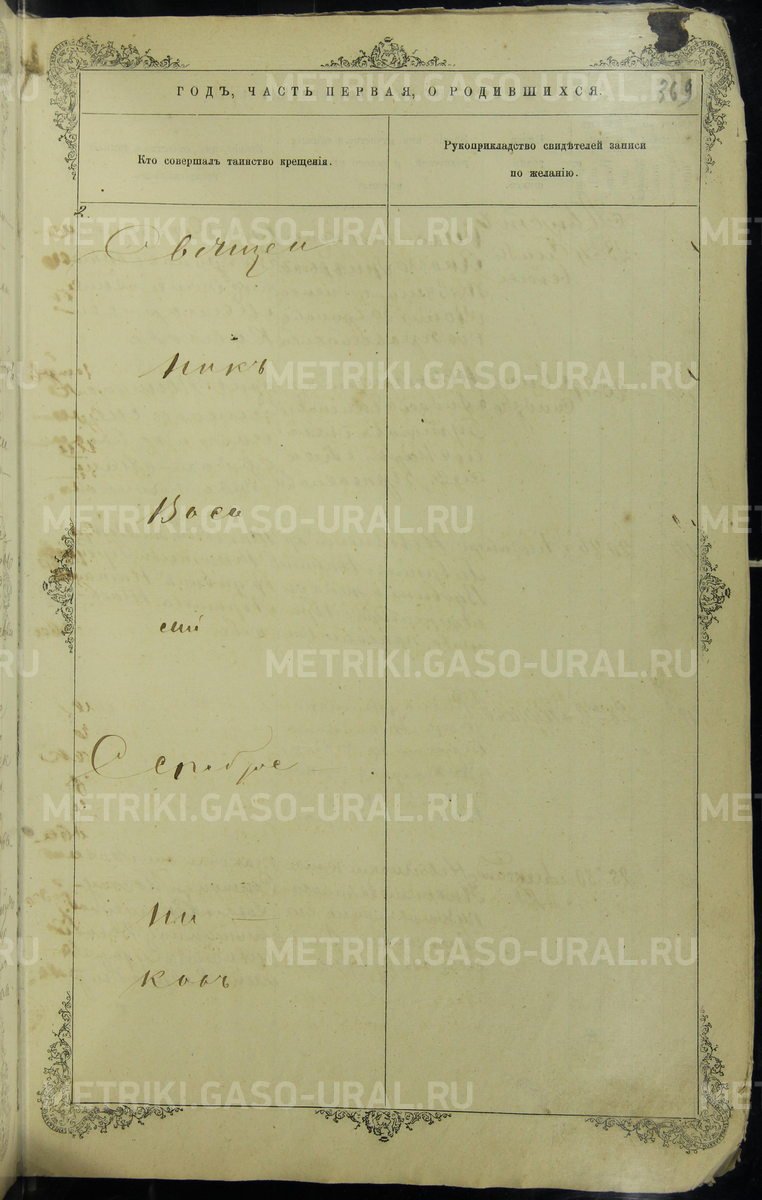 ГОДЪ, ЧАСТЬ ПЕРВАЯ, О РОДИВШИХСЯ.
369
Кто совершалъ таинство крещенія.
Рукоприкладство свидѣтелей записи
по желанію.
2.
Священ
никъ
Васи
лій
Серебре
ни
ковъ
METRIKI.GASO-URAL.RU